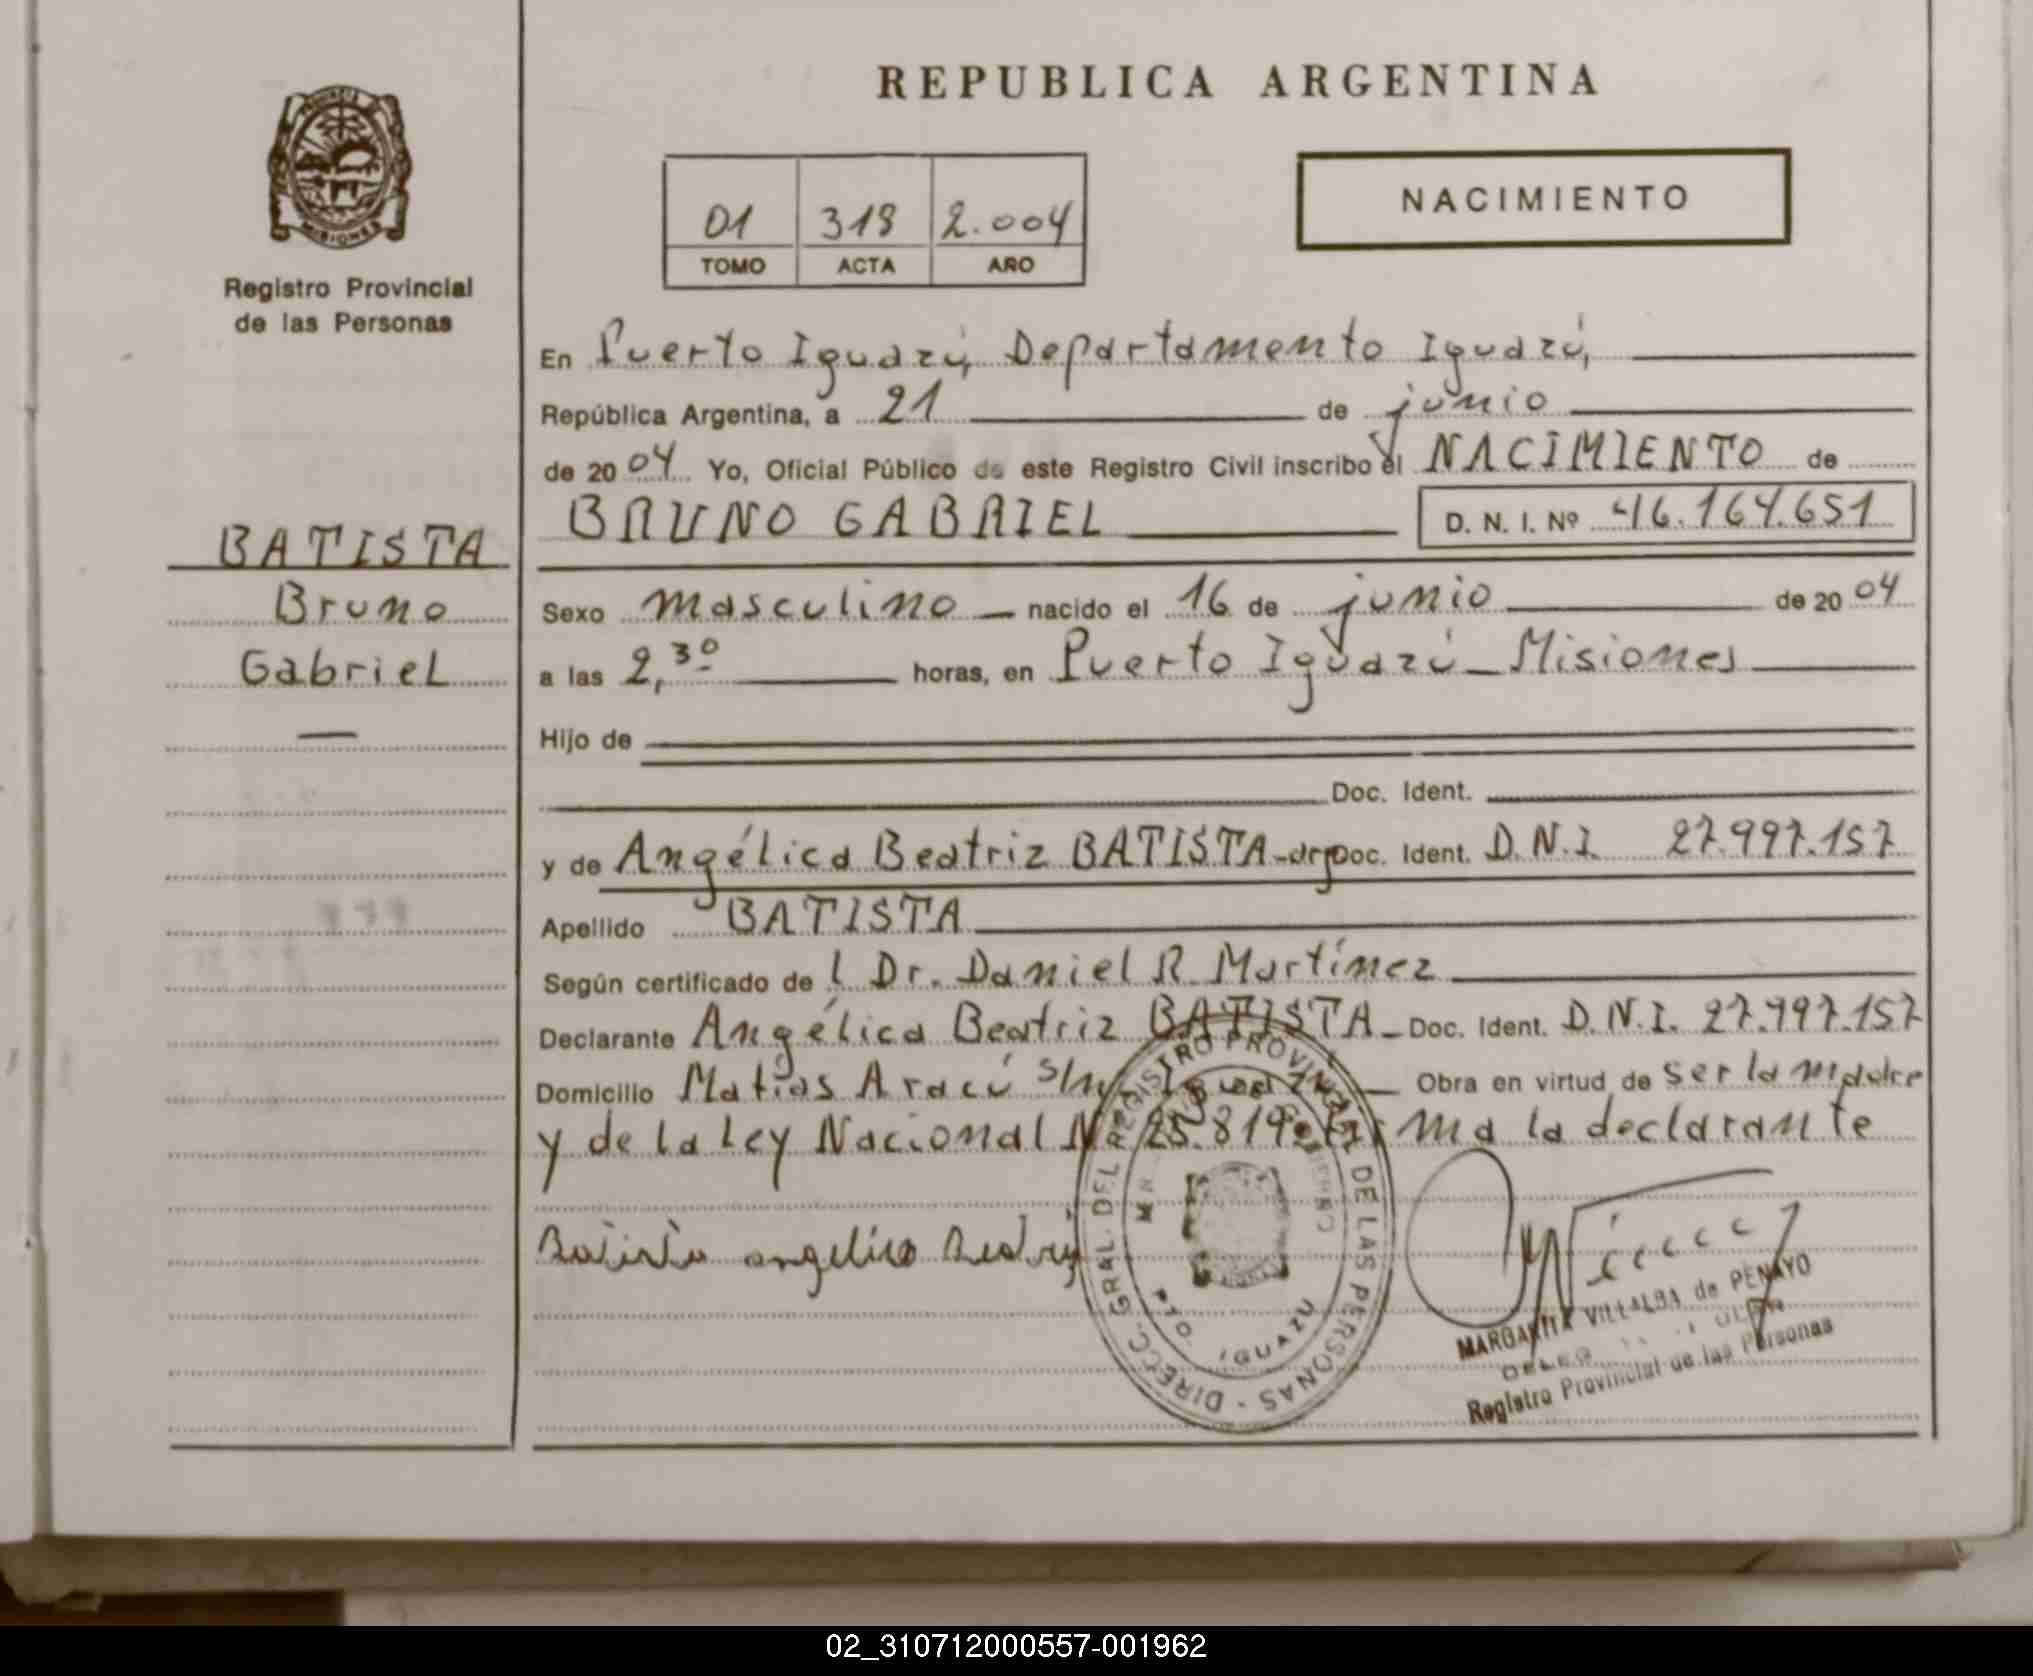 REPUBLICA ARGENTINA
PROVINCIA
MISIONES
Registro Provincial
de las Personas
01 318 2.004
TOMO ACTA AÑO
NACIMIENTO
En Puerto Iguazú, Departamento Iguazú,
República Argentina, a 21 de junio
de 2004 Yo, Oficial Público de este Registro Civil inscribo el NACIMIENTO de
BRUNO GABRIEL D. N. I. Nº 46.164.651
BATISTA
Bruno
Gabriel
Sexo masculino nacido el 16 de junio de 2004
a las 2,30 horas, en Puerto Iguazú - Misiones
Hijo de
Doc. Ident.
y de Angélica Beatriz BATISTA - arg Doc. Ident. D.N.I. 27.997.157
Apellido BATISTA
Según certificado de l Dr. Daniel R. Martínez
Declarante Angélica Beatriz BATISTA - Doc. Ident. D.N.I. 27.997.157
Domicilio Matías Aracú s/nº Iguazú Obra en virtud de ser la madre
y de la Ley Nacional Nº 25.819. Firma la declarante
Batista angelica Beatriz
DIRECC. GRAL. DEL REGISTRO PROVINCIAL DE LAS PERSONAS
PTO. IGUAZU
MARGARITA VILLALBA de PENAYO
Registro Provincial de las Personas
02_310712000557-001962